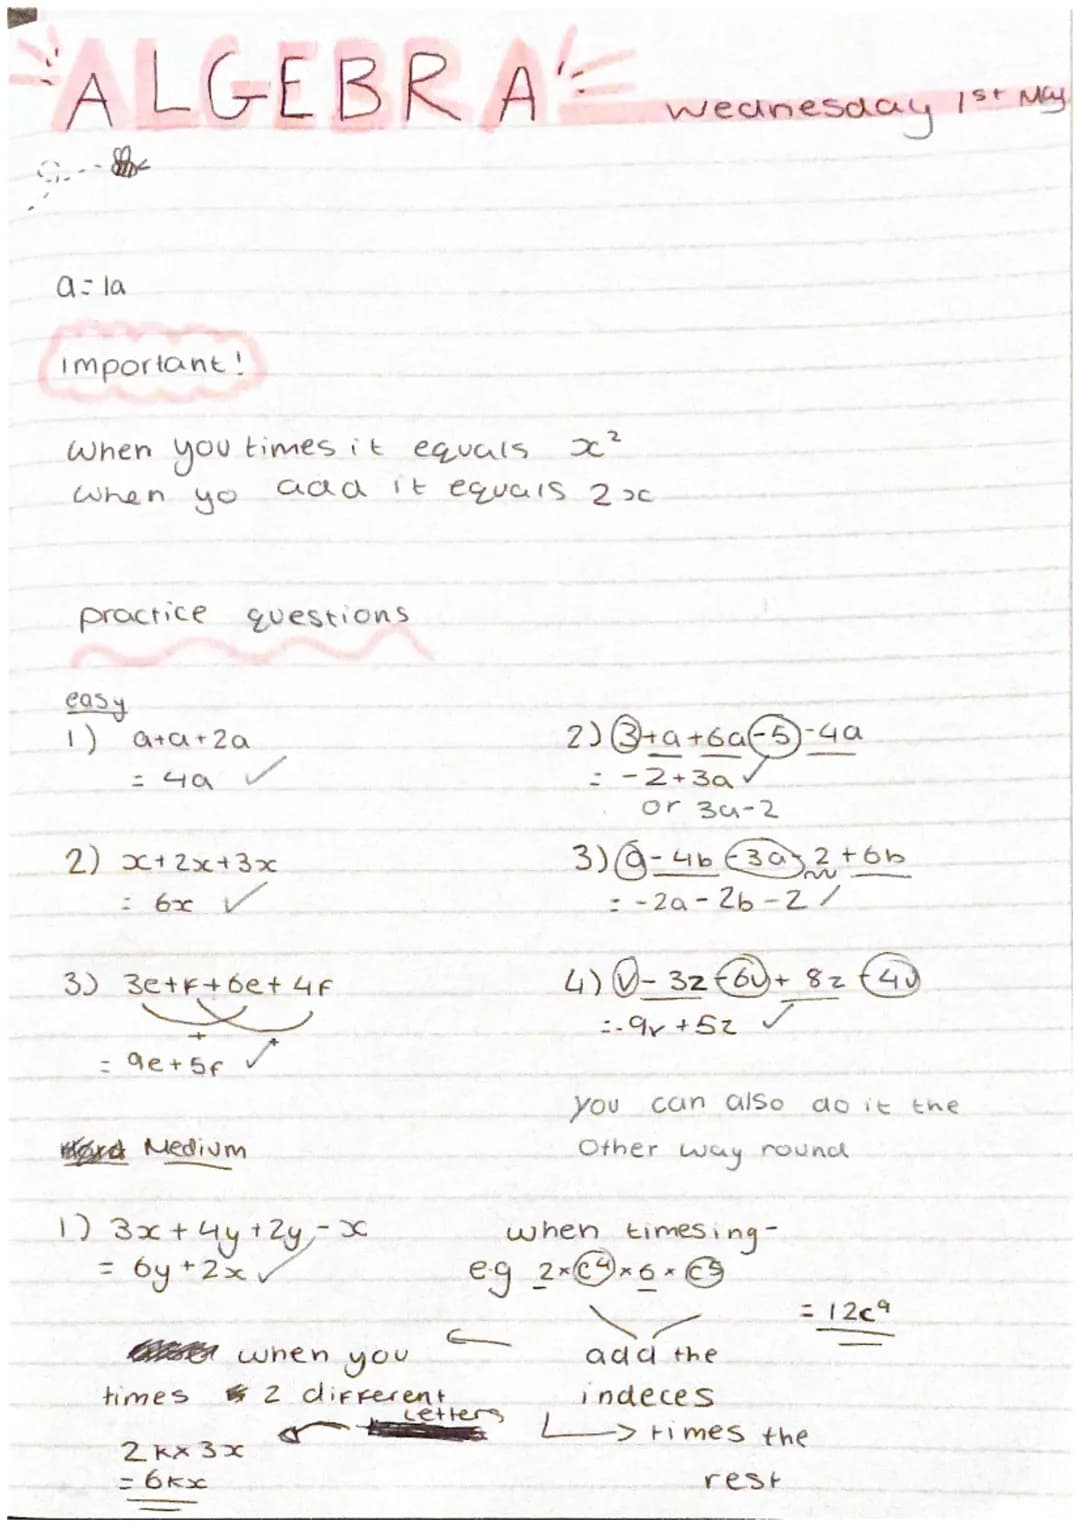 ALGEBRA
Wednesday 1st May
a = 1a
important!
When you times it equals x²
When yo add it equals 2x
practice questions
easy
1) a+a+2a
= 4a ✓
2) x+2x+3x
= 6x ✓
3) 3e+f+6e+4f
+ +
= 9e+5f ✓
2) 3+a+6a-5-4a
= -2+3a ✓
or 3a-2
3) a-4b-3a-2+6b
= -2a-2b-2
4) v-3z-6v+8z-4v
= -9v+5z ✓
you can also do it the
other way round
Medium
1) 3x+4y+2y-x
= 6y+2x ✓
when timesing-
e.g 2×c4×6×c5
= 12c9
add the
indeces
times the
rest
when you
times 2 different
letters
2k×3x
= 6kx